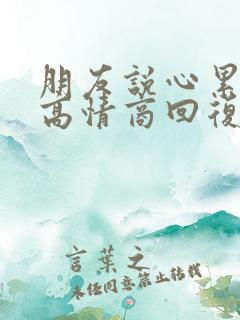 朋友說心累
高情商回復
言葉之
未经同意禁止转载